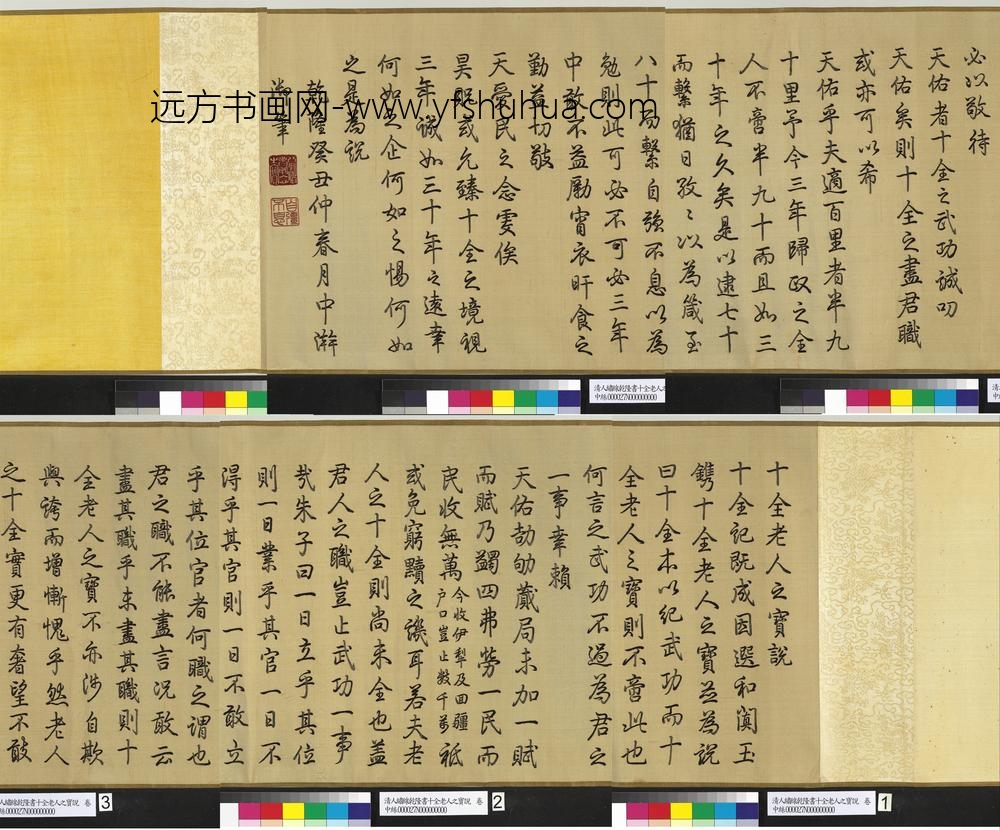 十全老人之寶說
十全記既成因選和闐玉
鐫十全老人之寶並為說
曰十全本以紀武功而十
全老人之寶則不啻此也
何言之武功不過為君之
一事幸賴
天佑劼劬蕆局未加一賦
而賦乃蠲四弗勞一民而
民收無萬今收伊犁及回疆戶口豈止數千萬祗
或免窮黷之譏耳若夫老
人之十全則尚未全也蓋
君人之職豈止武功一事
哉朱子曰一日立乎其位
則一日業乎其官一日不
得乎其官則一日不敢立
乎其位官者何職之謂也
君之職不能盡言況敢云
盡其職乎未盡其職則十
全老人之寶不亦涉自欺
與誇而增慚愧乎然老人
之十全實更有奢望不敢
必以敬待
天佑者十全之武功誠叨
天佑矣則十全之盡君職
或亦可以希
天佑乎夫適百里者半九
十里予今三年歸政之全
人不啻半九十而且如三
十年之久矣是以逮七十
而繫猶日孜〻以為箴至
八十而繫自強不息以為
勉則此可必不可必三年
中敢不益勵宵衣旰食之
勤益切敬
天愛民之念雯俟
昊貺或允臻十全之境視
三年誠如三十年之遠幸
何如之企何如之惕何如
之是為說
乾隆癸丑仲春月中澣
御筆
自彊不息
远方书画网-www.yfshuhua.com
清人繡線乾隆書十全老人之寶說 卷
中絲000027N000000000
1
清人繡線乾隆書十全老人之寶說 卷
中絲000027N000000000
2
人繡線乾隆書十全老人之寶說 卷
絲000027N000000000
3
清人繡線乾隆書十全老人之
中絲000027N000000000